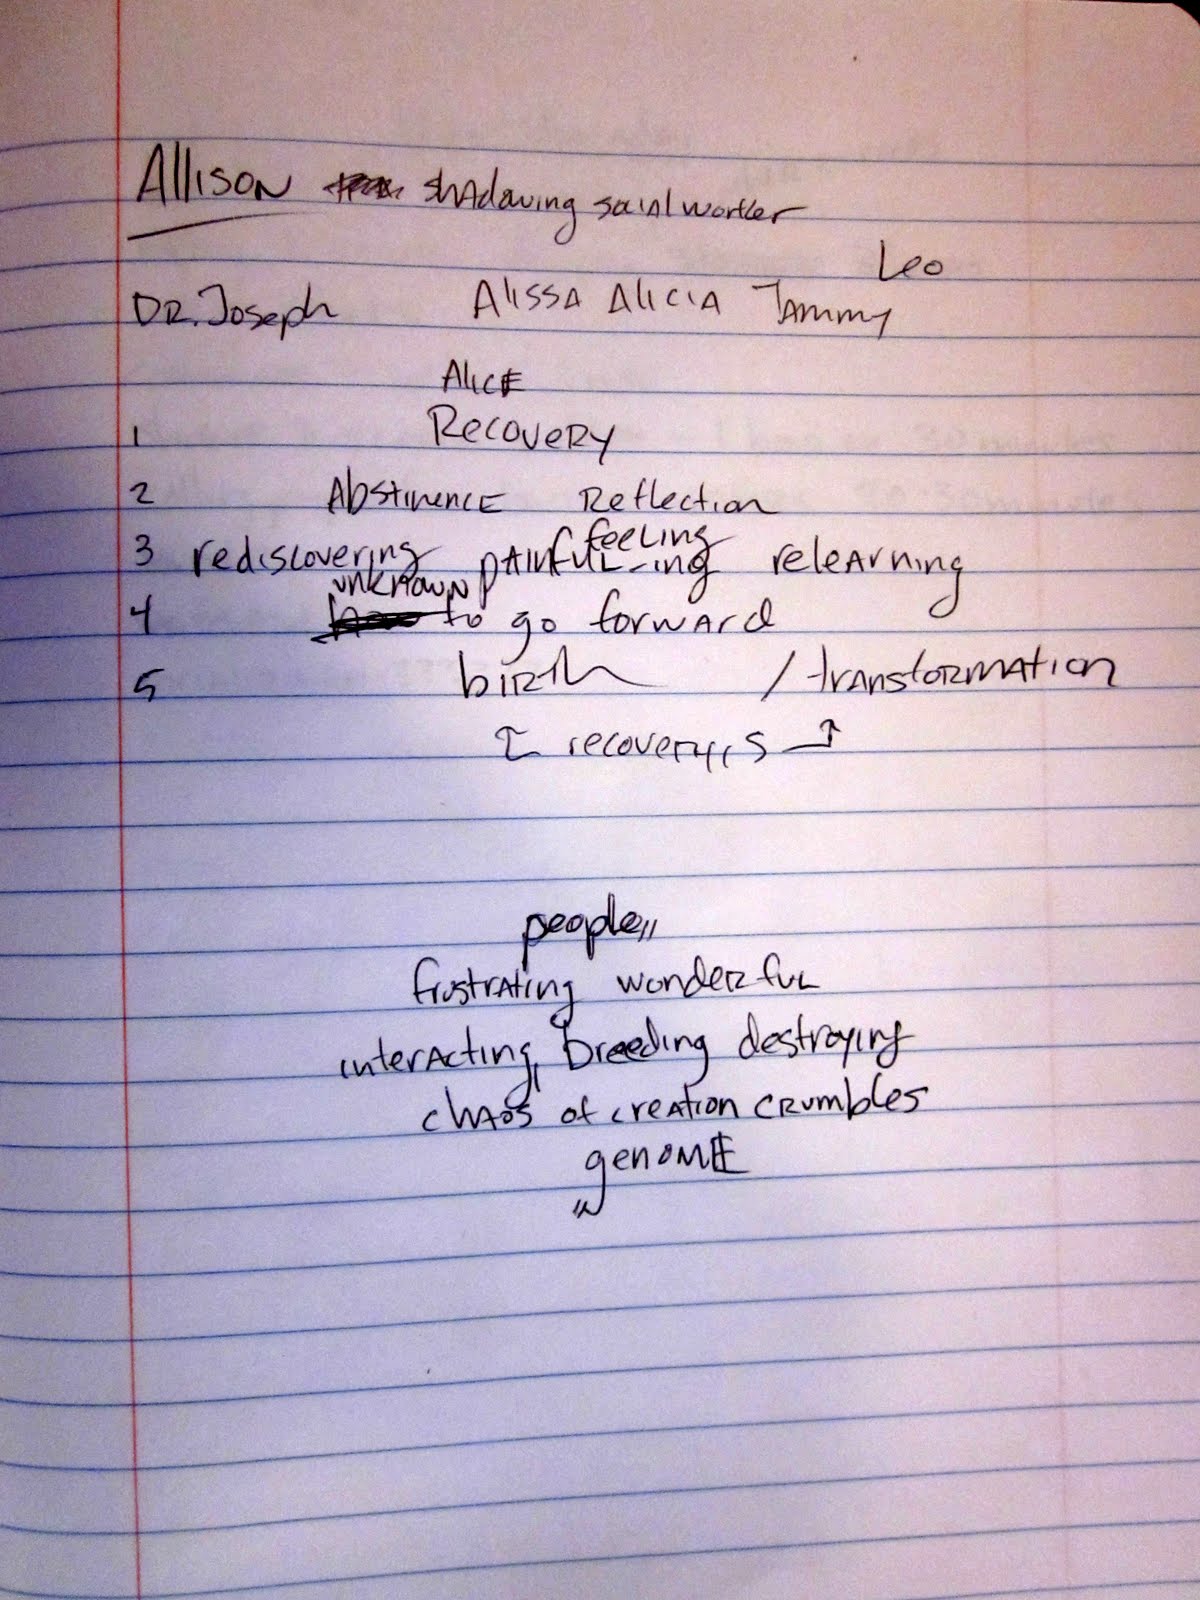 Allison shadowing social worker
Leo
Dr. Joseph Alissa Alicia Tammy
Alice
1 Recovery
2 Abstinence Reflection
feeling
3 rediscovering painful-ing relearning
unknown
4 to go forward
5 birth / transformation
recovery,,s
people,,
frustrating wonderful
interacting, breeding destroying
chaos of creation crumbles
genome